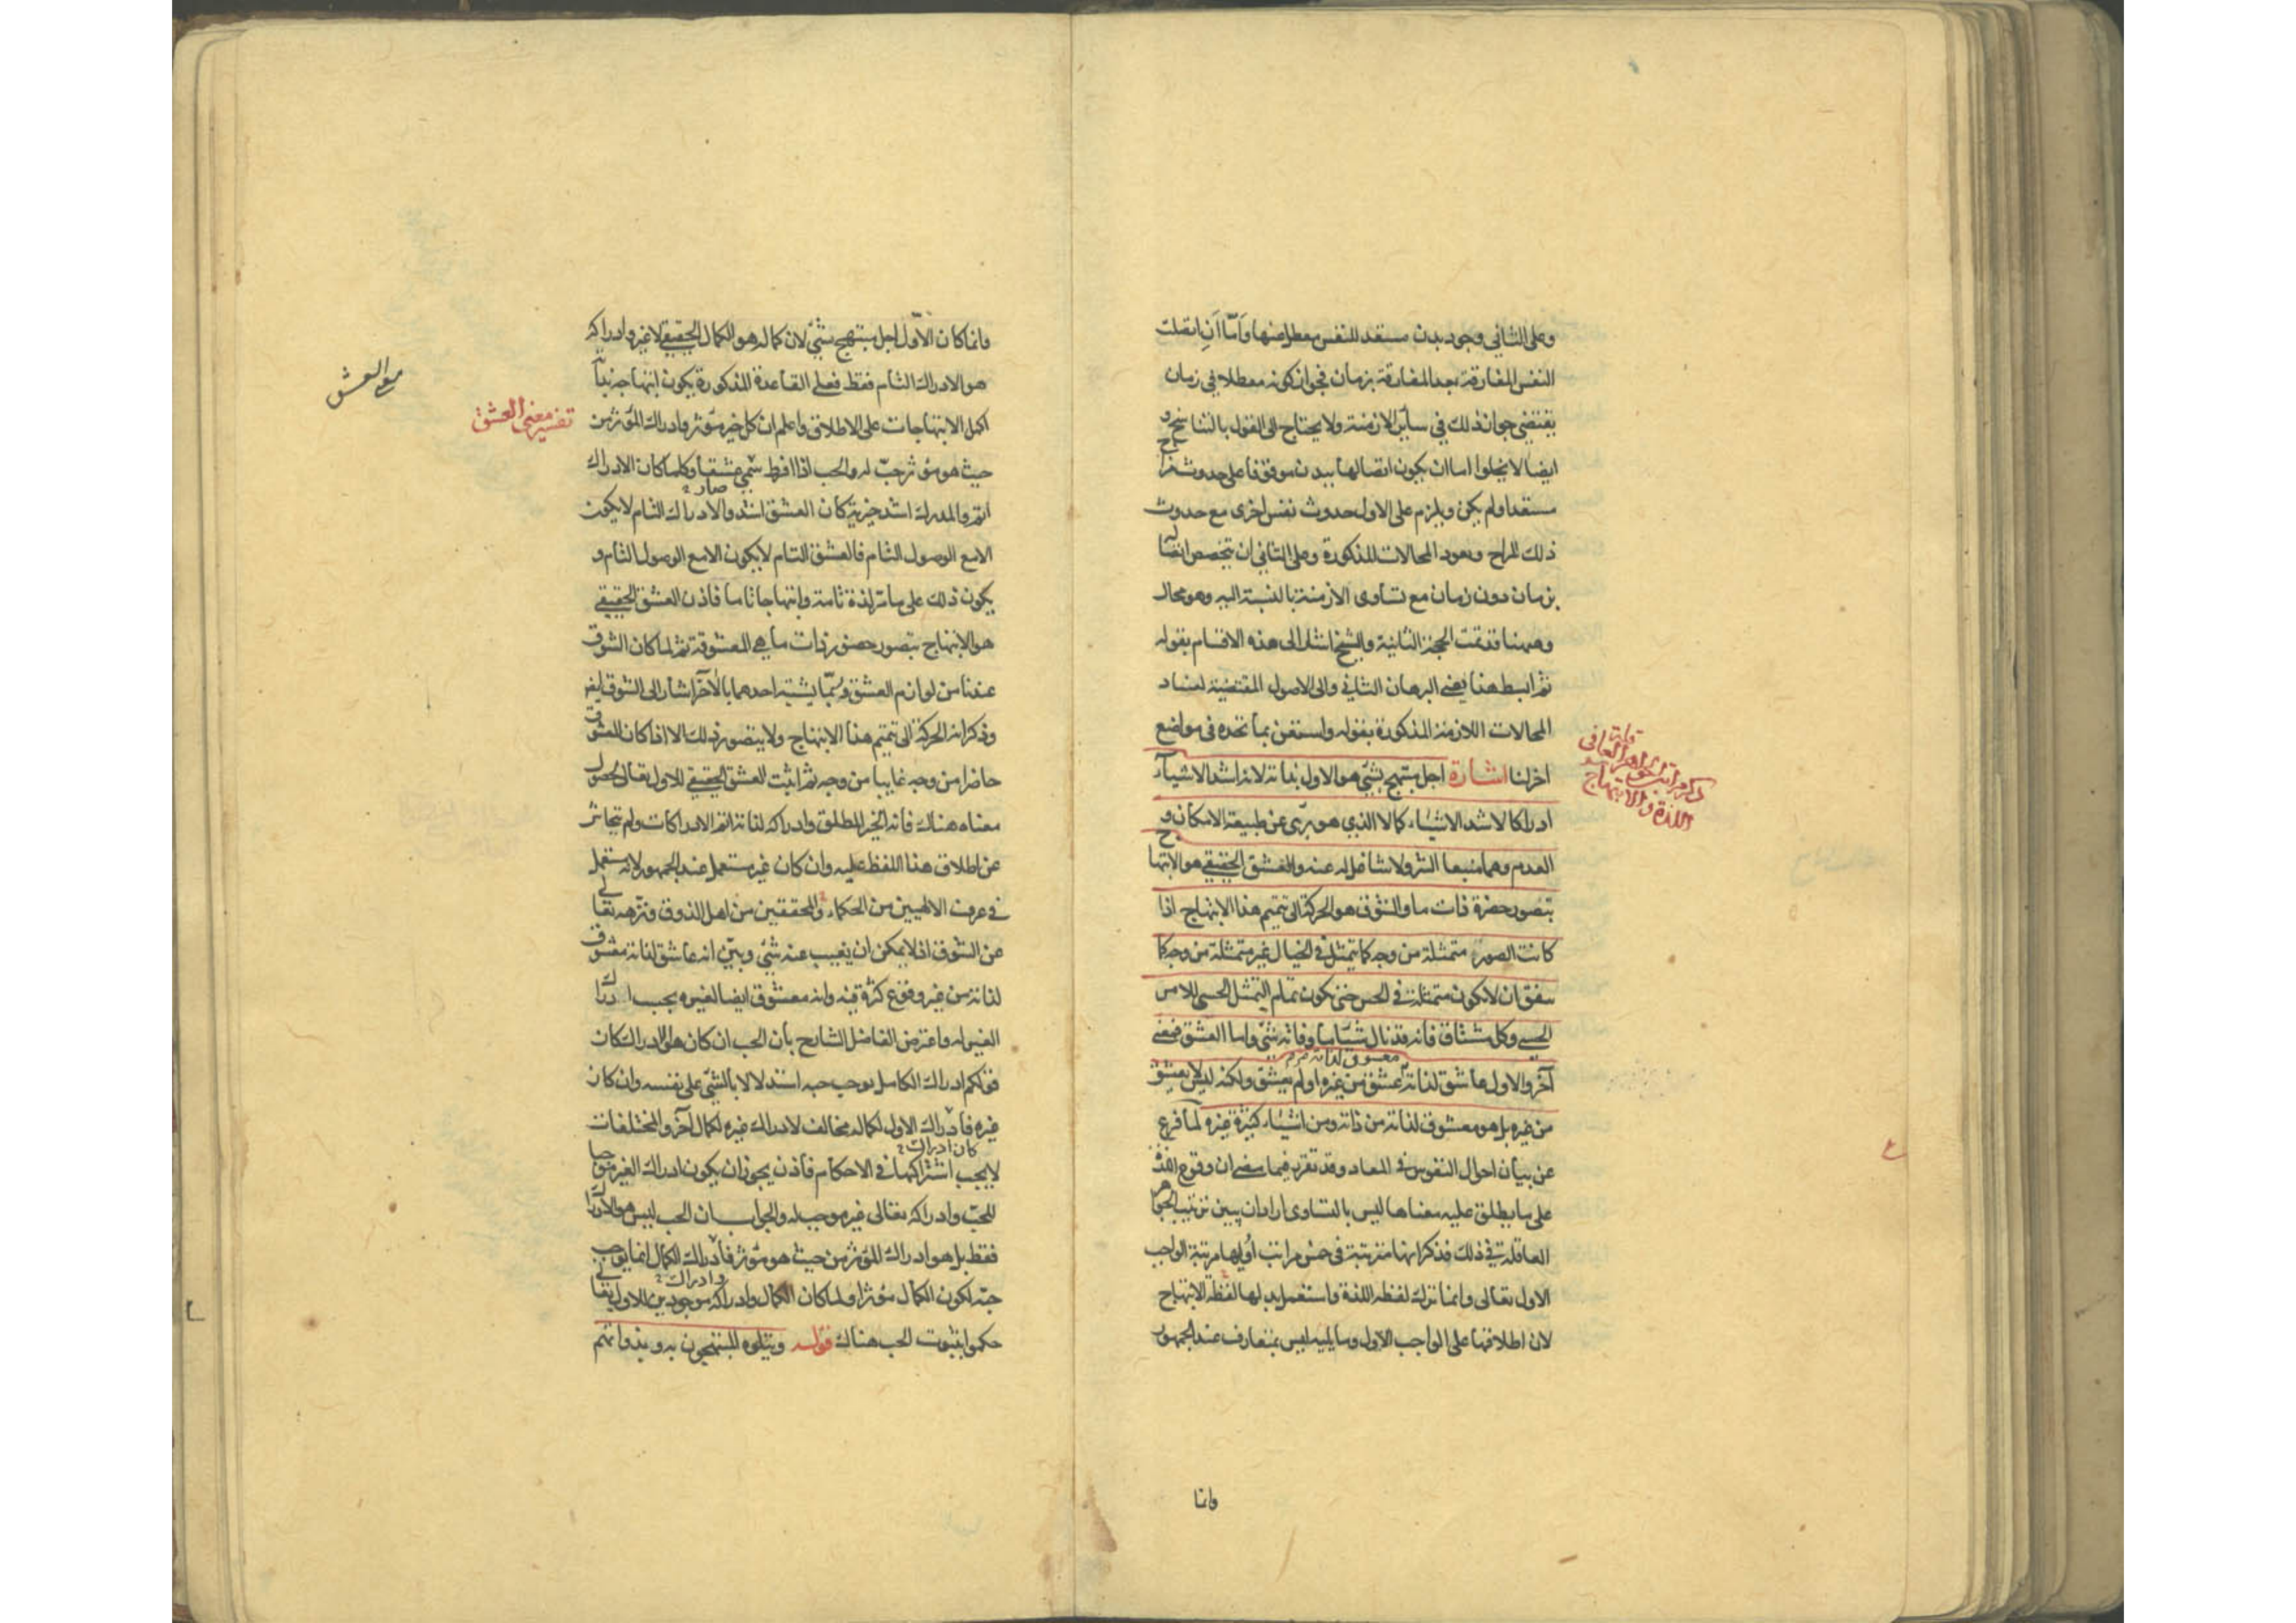 وعلى الثاني وجود بدن مستعد للنفس معطل عنها واما ان اتصلت
النفس المفارقة بعد المفارقة بزمان فجواز كونه معطلا في زمان
يقتضي جواز ذلك في سائر الازمنة ولا يحتاج الى القول بالتناسخ و
ايضا لا يخلوا اما ان يكون اتصالها ببدن موقوفا على حدوث مزاج
مستعد او لم يكن ويلزم على الاول حدوث نفس اخرى مع حدوث
ذلك المزاج ويعود المحالات المذكورة وعلى الثاني ان يتخصص اتصاله
بزمان دون زمان مع تساوى الازمنة بالنسبة اليه وهو محال
وههنا قد تمت الحجة الثانية والشيخ اشار الى هذه الاقسام بقوله
ثم ابسط هذا يعني البرهان الثاني والى الاصول المقتضية لفساد
المحالات اللازمة المذكورة بقوله واستعن بما تجده في مواضع
اخر لنا اشارة اجل مبتهج بشئ هو الاول بذاته لانه اشد الاشياء
ادراكا لاشد الاشياء كمالا الذي هو برى عن طبيعة الامكان و
العدم وهما منبعا الشر ولا شاغل له عنه والعشق الحقيقي هو الابتهاج
بتصور حضرة ذات ما والشوق هو الحركة الى تتميم هذا الابتهاج اذا
كانت الصورة متمثلة من وجه كما يتمثل في الخيال غير متمثلة من وجه كما
يتفق ان لا يكون متمثلة في الحس حتى يكون تمام التمثل الحسي للامر
الحسي وكل مشتاق فانه قد نال شيئا ما وفاته شئ واما العشق فمعنى
معشوق لذاته
آخر والاول عاشق لذاته عشق من غيره او لم يعشق ولكنه ليس لا يعشق
من غيره بل هو معشوق لذاته من ذاته ومن اشياء كثيرة غيره لما فرغ
عن بيان احوال النفوس في المعاد وقد تقرر فيما مضى ان وقوع اللذة
على ما يطلق عليه معناها ليس بالتساوى اراد ان يبين ترتيب الجواهر
العاقلة في ذلك فذكر انها مترتبة في خمس مراتب اوليها مرتبة الواجب
الاول تعالى وانما ترك لفظه اللذة واستعمل بدلها لفظة الابتهاج
لان اطلاقها على الواجب الاول وما يليه ليس بمتعارف عند الجمهور
وانما
مراتب الجواهر
اللذة والابتهاج
وانما كان الاول اجل مبتهج بشئ لان كماله هو الكمال الحقيقي لا غير وادراكه
هو الادراك التام فقط فعلى القاعدة المذكورة يكون ابتهاجه بذاته
اكمل الابتهاجات على الاطلاق واعلم ان كل خير مؤثر وادراك المؤثر من
حيث هو مؤثر حب له والحب اذا افرط سمي عشقا وكلما كان الادراك
صار
اتم والمدرك اشد خيرية كان العشق اشد والادراك التام لا يكون
الا مع الوصول التام فالعشق التام لا يكون الا مع الوصول التام و
يكون ذلك على ما مر لذة تامة وابتهاجا تاما فاذن العشق الحقيقي
هو الابتهاج بتصور حضور ذات ما هي المعشوقة ثم لما كان الشوق
عندنا من لوازم العشق وربما يشتبه احدهما بالآخر اشار الى الشوق ايضا
وذكر انه الحركة الى تتميم هذا الابتهاج ولا يتصور ذلك الا اذا كان المعشوق
حاضرا من وجه غايبا من وجه ثم اثبت العشق الحقيقي للاول تعالى لحصول
معناه هناك فانه الخير المطلق وادراكه لذاته اتم الادراكات ولم يتحاش
عن اطلاق هذا اللفظ عليه وان كان غير مستعمل عند الجمهور لانه مستعمل
في عرف الالهيين من الحكماء والمحققين من اهل الذوق ونزهه تعالى
عن الشوق اذ لا يمكن ان يغيب عنه شئ وبين انه عاشق لذاته معشوق
لذاته من غير وقوع كثرة فيه وانه معشوق ايضا لغيره بحسب ادراك
الغير له واعترض الفاضل الشارح بأن الحب ان كان هو الادراك كان
قولكم ادراك الكامل يوجب حبه استدلالا بالشئ على نفسه وان كان
غيره فادراك الاول لكماله مخالف لادراك غيره لكمال آخر والمختلفات
كان ادراك
لا يجب اشتراكهما في الاحكام فاذن يجوز ان يكون ادراك الغير موجبا
للحب وادراكه تعالى غير موجب له والجواب ان الحب ليس هو الادراك
فقط بل هو ادراك المؤثر من حيث هو مؤثر فادراك الكمال انما يوجب
وادراك
حبه لكون الكمال مؤثرا ولما كان الكمال وادراكه موجودين للاول تعالى
حكموا بثبوت الحب هناك قوله ويتلوه المبتهجون به وبذواتهم
تفسير معنى العشق
مع العشق